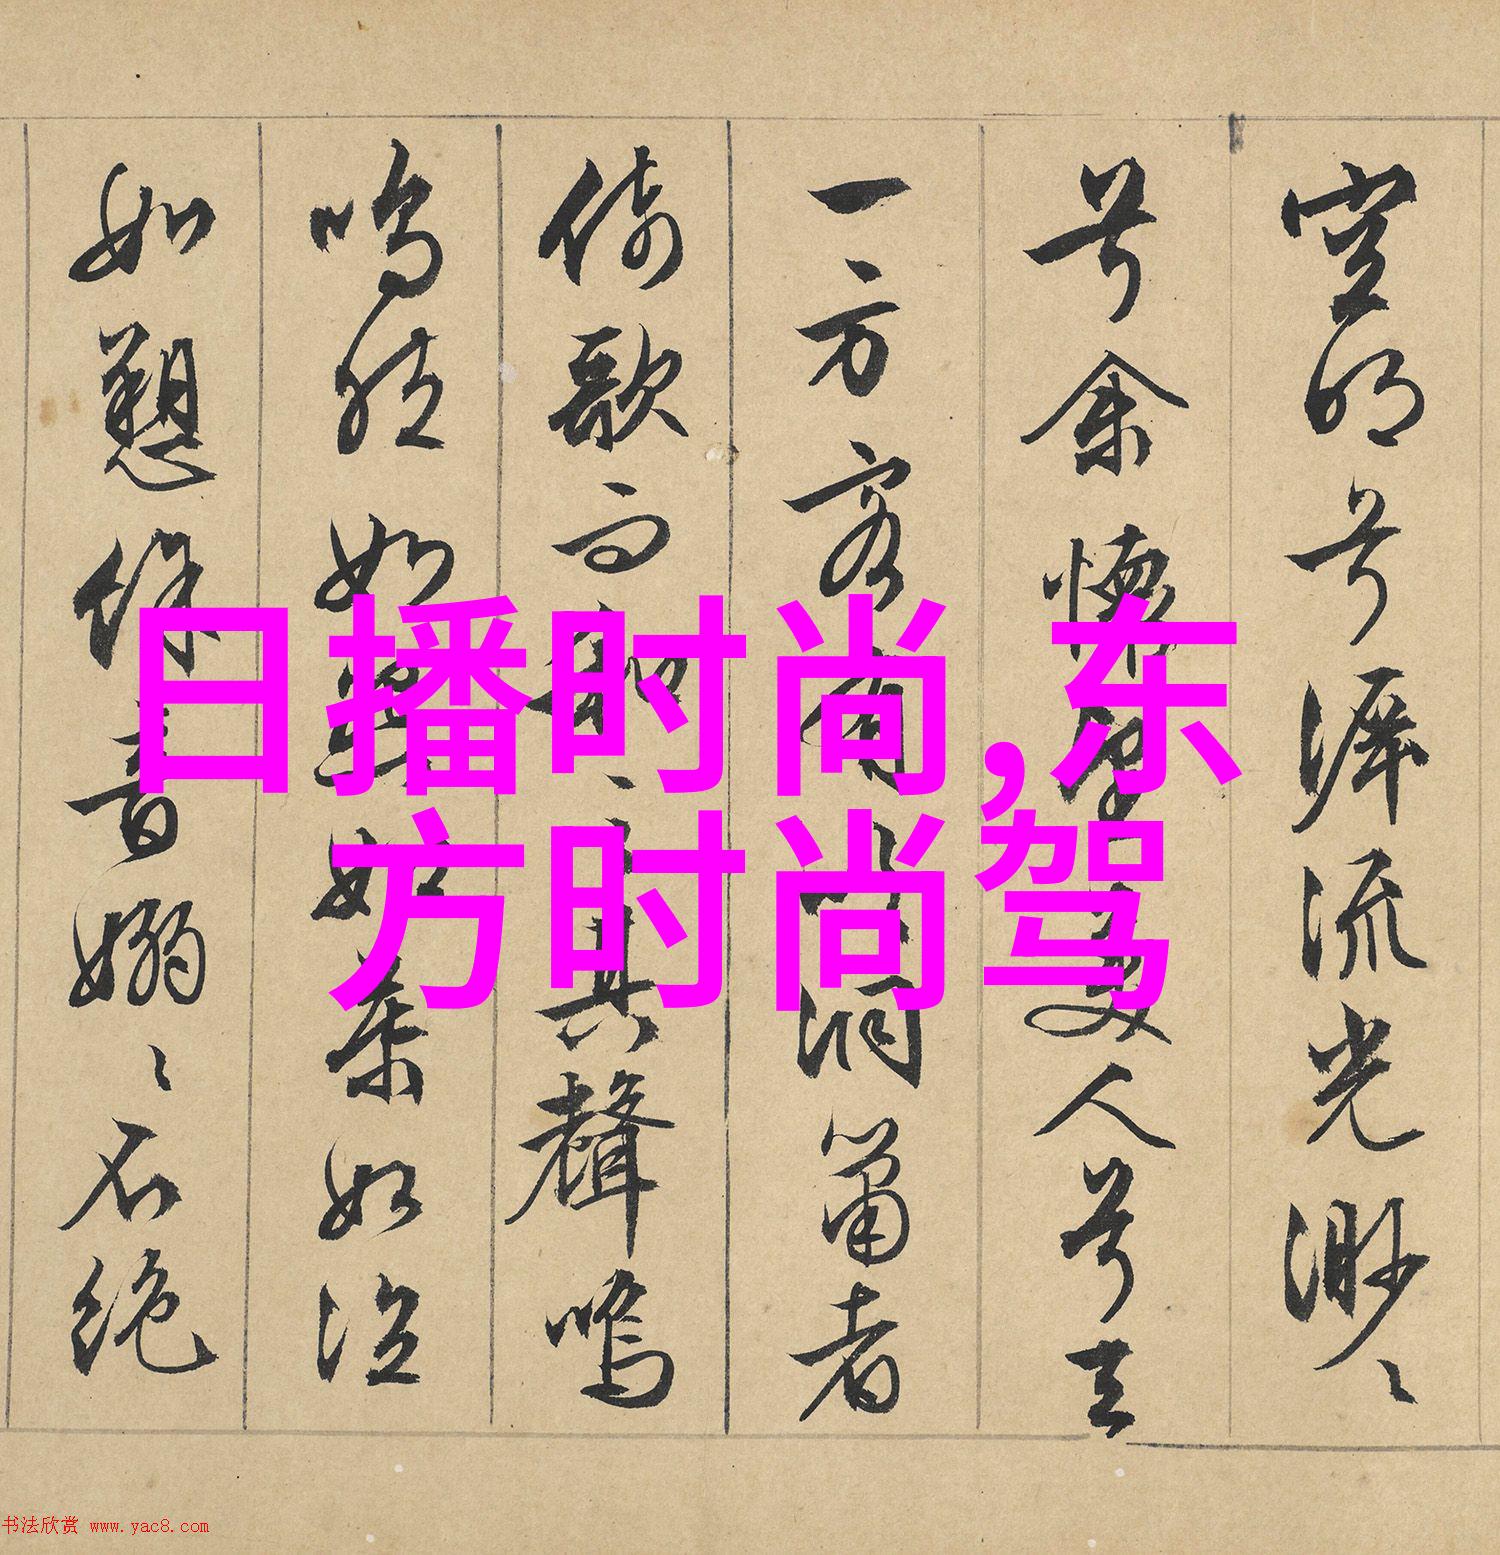 空明兮泝流光渺々
兮余懷望美人兮天
一方客有吹洞簫者
倚歌而和之其聲嗚
嗚然如怨如慕如泣
如愬餘音嫋々不絕
日播时尚,东
方时尚驾
书法欣赏 www.yac8.com